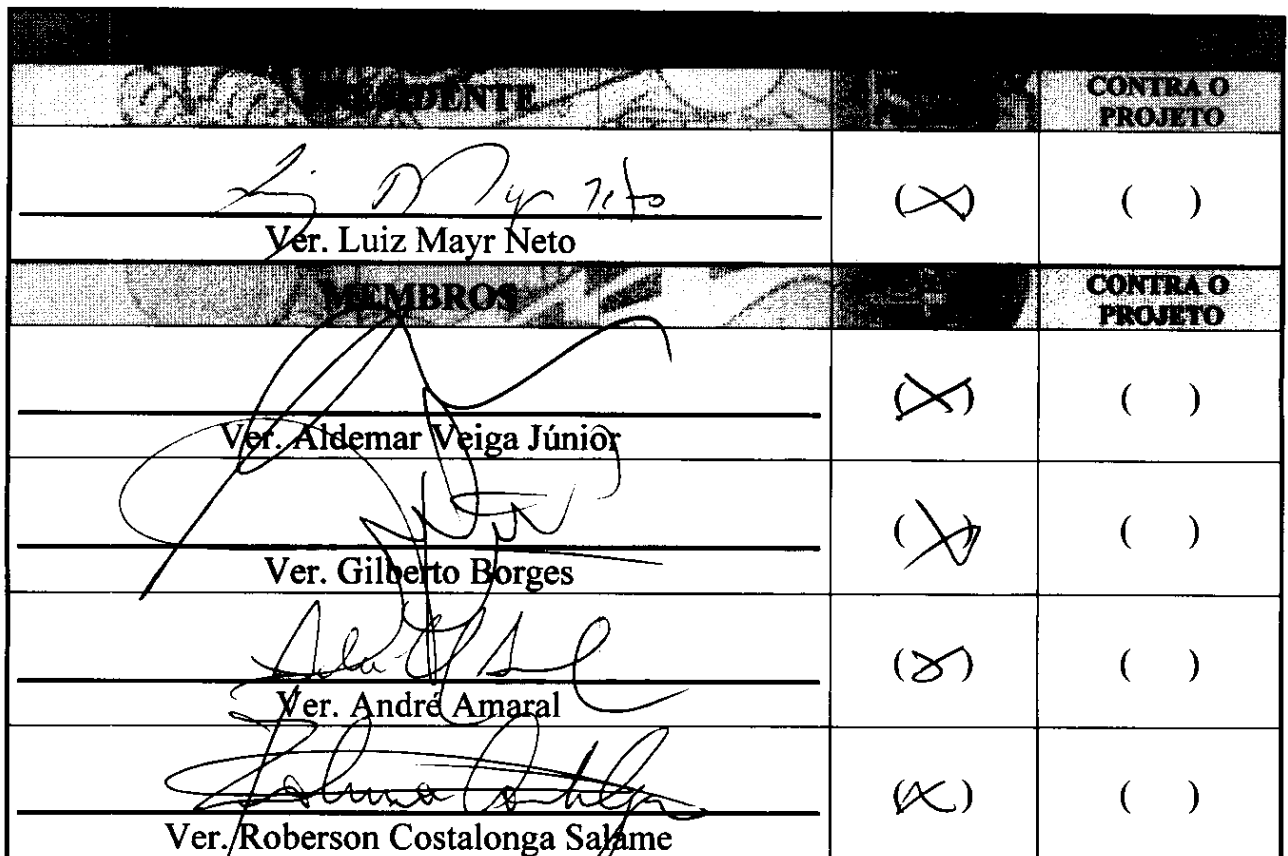 PRESIDENTE
CONTRA O
PROJETO
(X)
( )
Ver. Luiz Mayr Neto
MEMBROS
CONTRA O
PROJETO
(X)
( )
Ver. Aldemar Veiga Júnior
(X)
( )
Ver. Gilberto Borges
(X)
( )
Ver. André Amaral
(X)
( )
Ver. Roberson Costalonga Salame